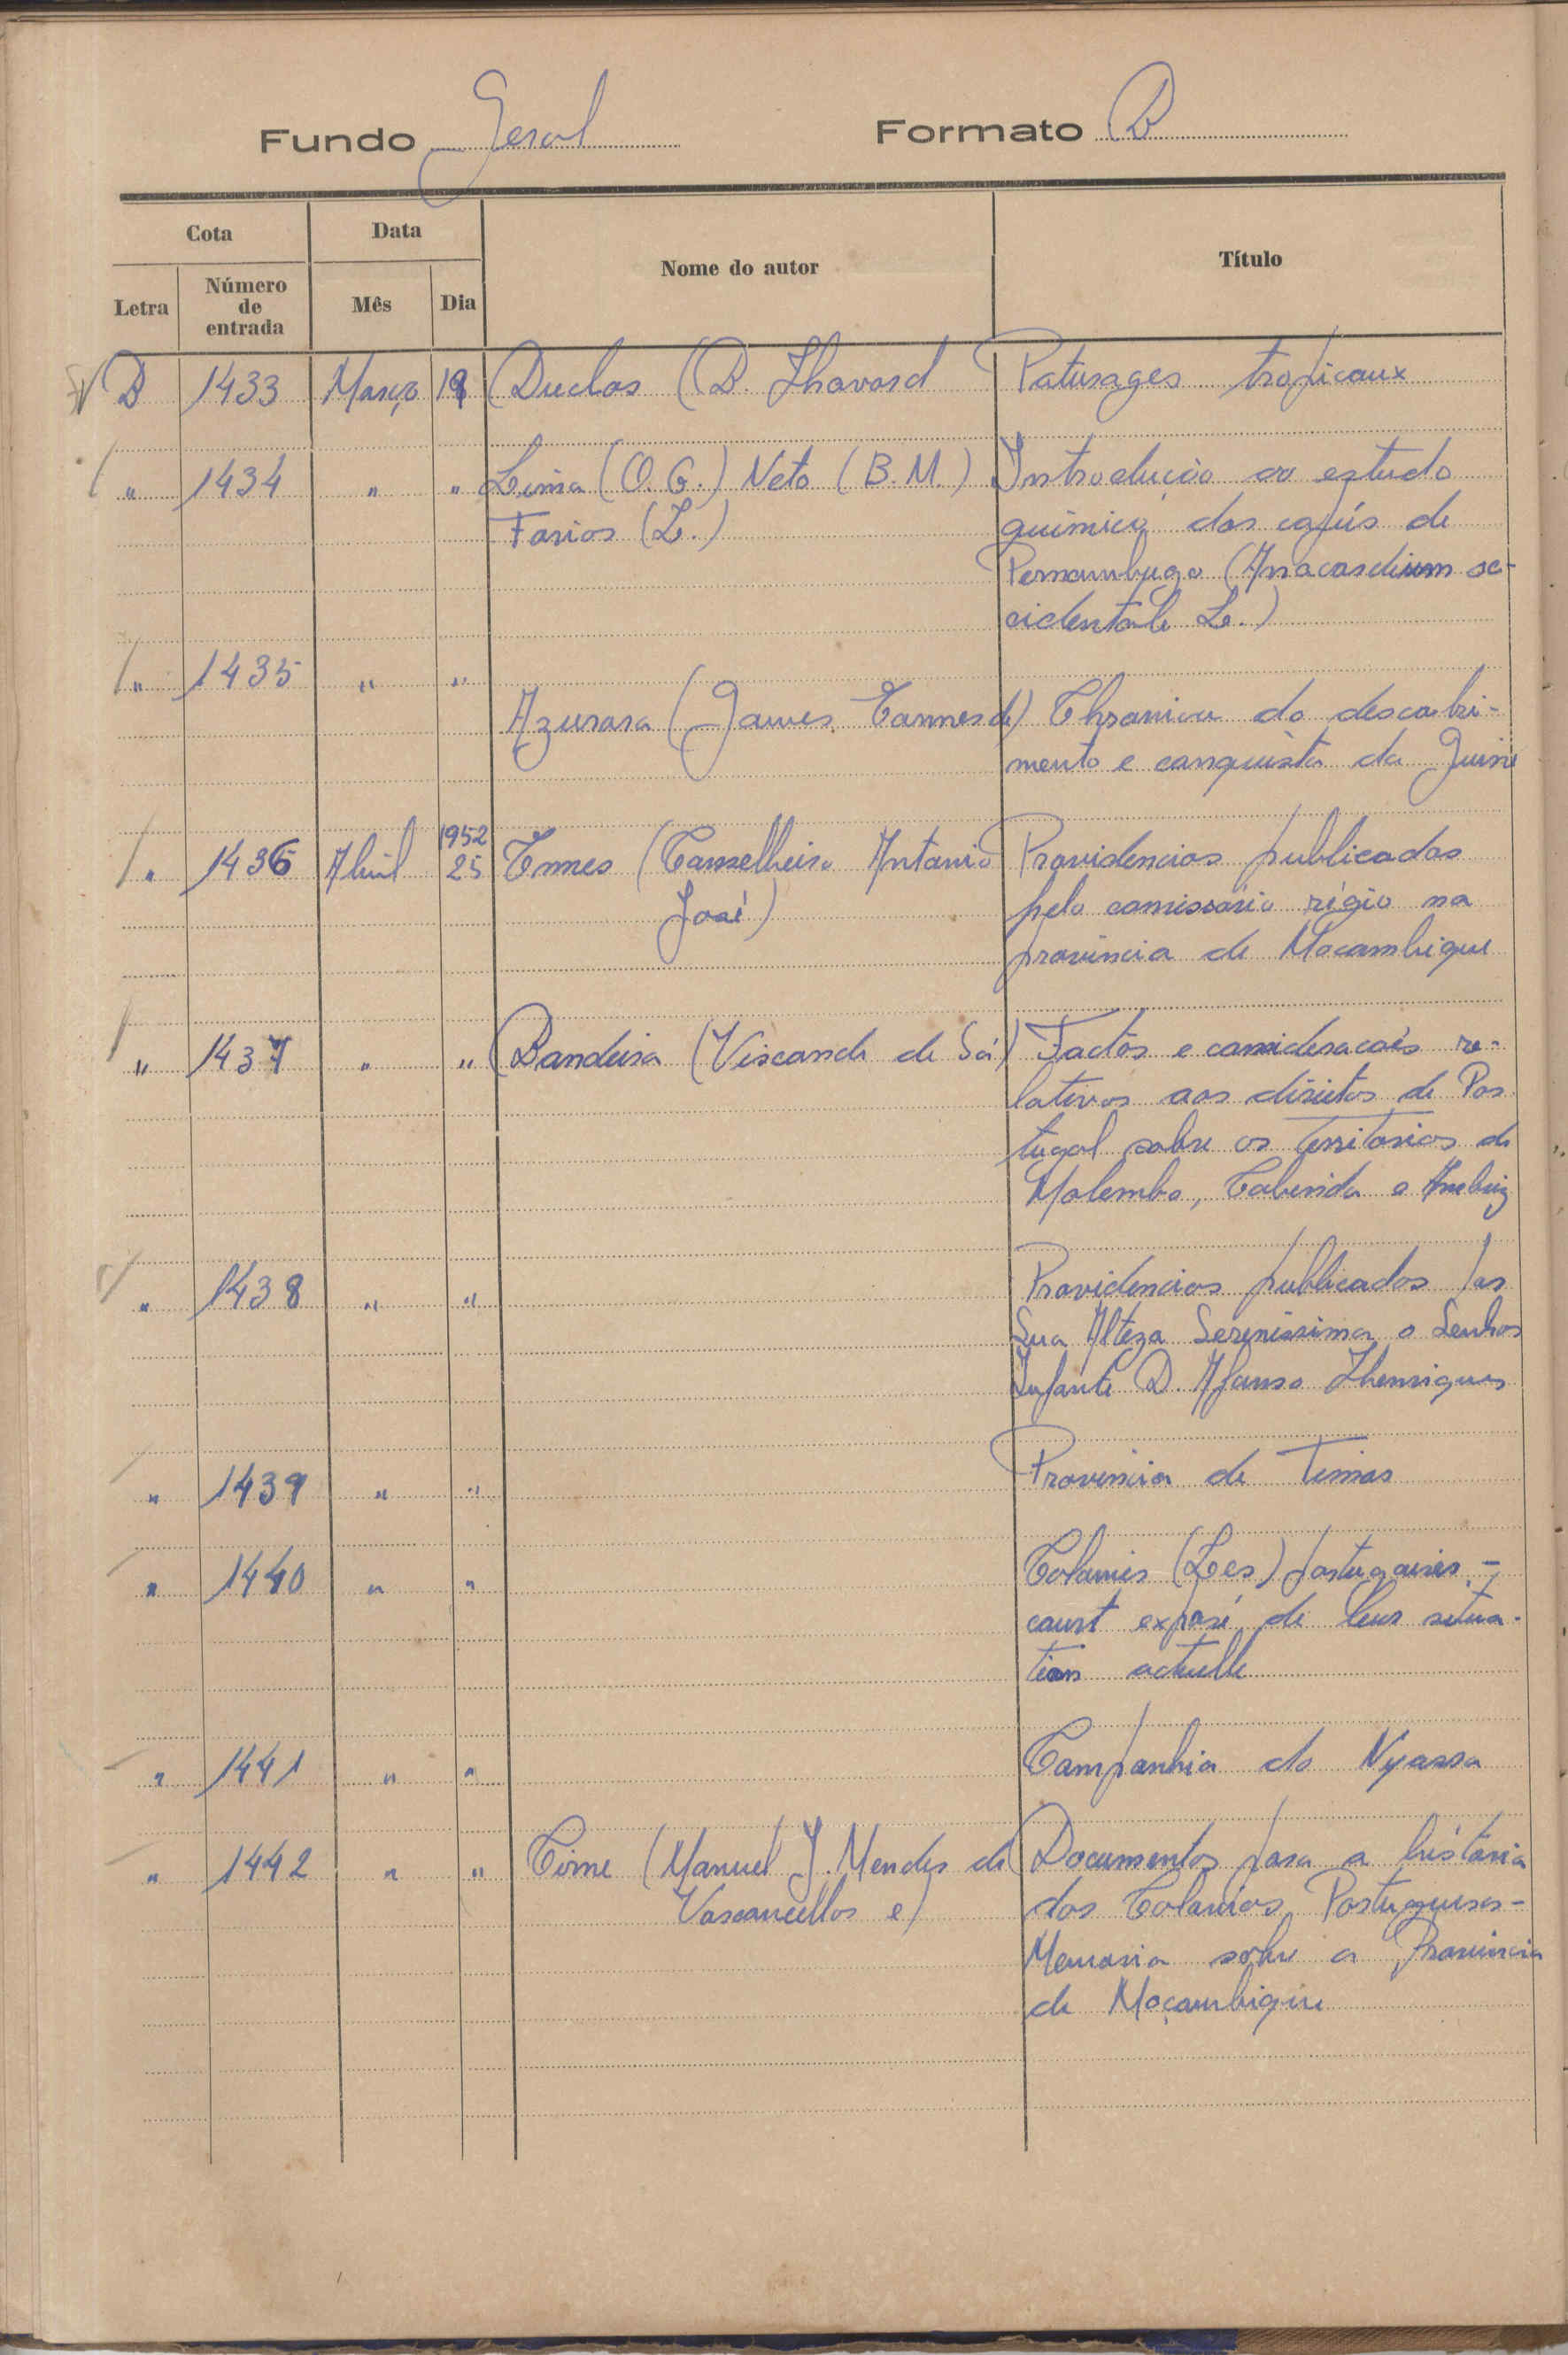 Fundo Geral Formato B
Cota Data Nome do autor Título
Letra Número de entrada Mês Dia
B 1433 Março Duclos (B. Thavard Paturages tropicaux
" 1434 " " Lima (O. G.) Neto (B. M.) Introdução ao estudo
Farias (L.) químico dos cajús de
Pernambugo (Anacardium oc-
cidentale L.)
" 1435 " "
Azurara (Gomes Eannes de) Chronica do descobri-
mento e conquista da Guiné
1952
" 1436 Abril 25 Ennes (Conselheiro Antonio Providencias publicadas
José) pelo comissário régio na
provincia de Mocambique
" 1437 " " Bandeira (Visconde de Sá) Factos e consideracoes re-
lativos aos direitos de Por
tugal sobre os territorios de
Molembo, Cabinda e Ambriz
" 1438 " " Providencias publicadas por
Sua Alteza Serenissima o Senhor
Infante D. Afonso Henriques
" 1439 " " Provincia de Timor
" 1440 " " Colonies (Les) portugaises -
court exposé de leur situa-
tion actuelle
" 1441 " " Companhia do Nyassa
" 1442 " " Cirne (Manuel J. Mendes de Documentos para a história
Vasconcellos e) das Colonias Portuguesas -
Memoria sobre a Provincia
de Moçambique